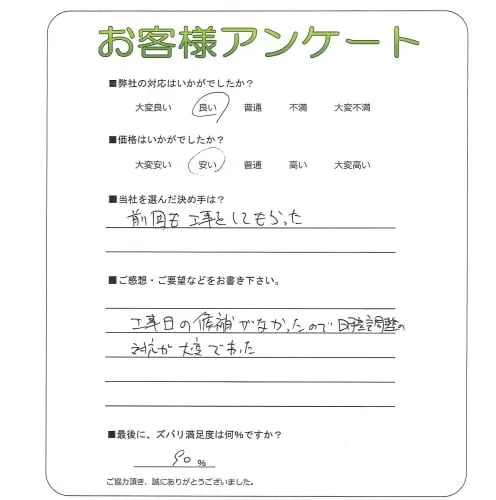 お客様アンケート
■弊社の対応はいかがでしたか？
大変良い 良い 普通 不満 大変不満
■価格はいかがでしたか？
大変安い 安い 普通 高い 大変高い
■当社を選んだ決め手は？
前回も工事をしてもらった
■ご感想・ご要望などをお書き下さい。
工事日の候補がなかったので日程調整の
対応が大変でした
■最後に、ズバリ満足度は何％ですか？
90 %
ご協力頂き、誠にありがとうございました。